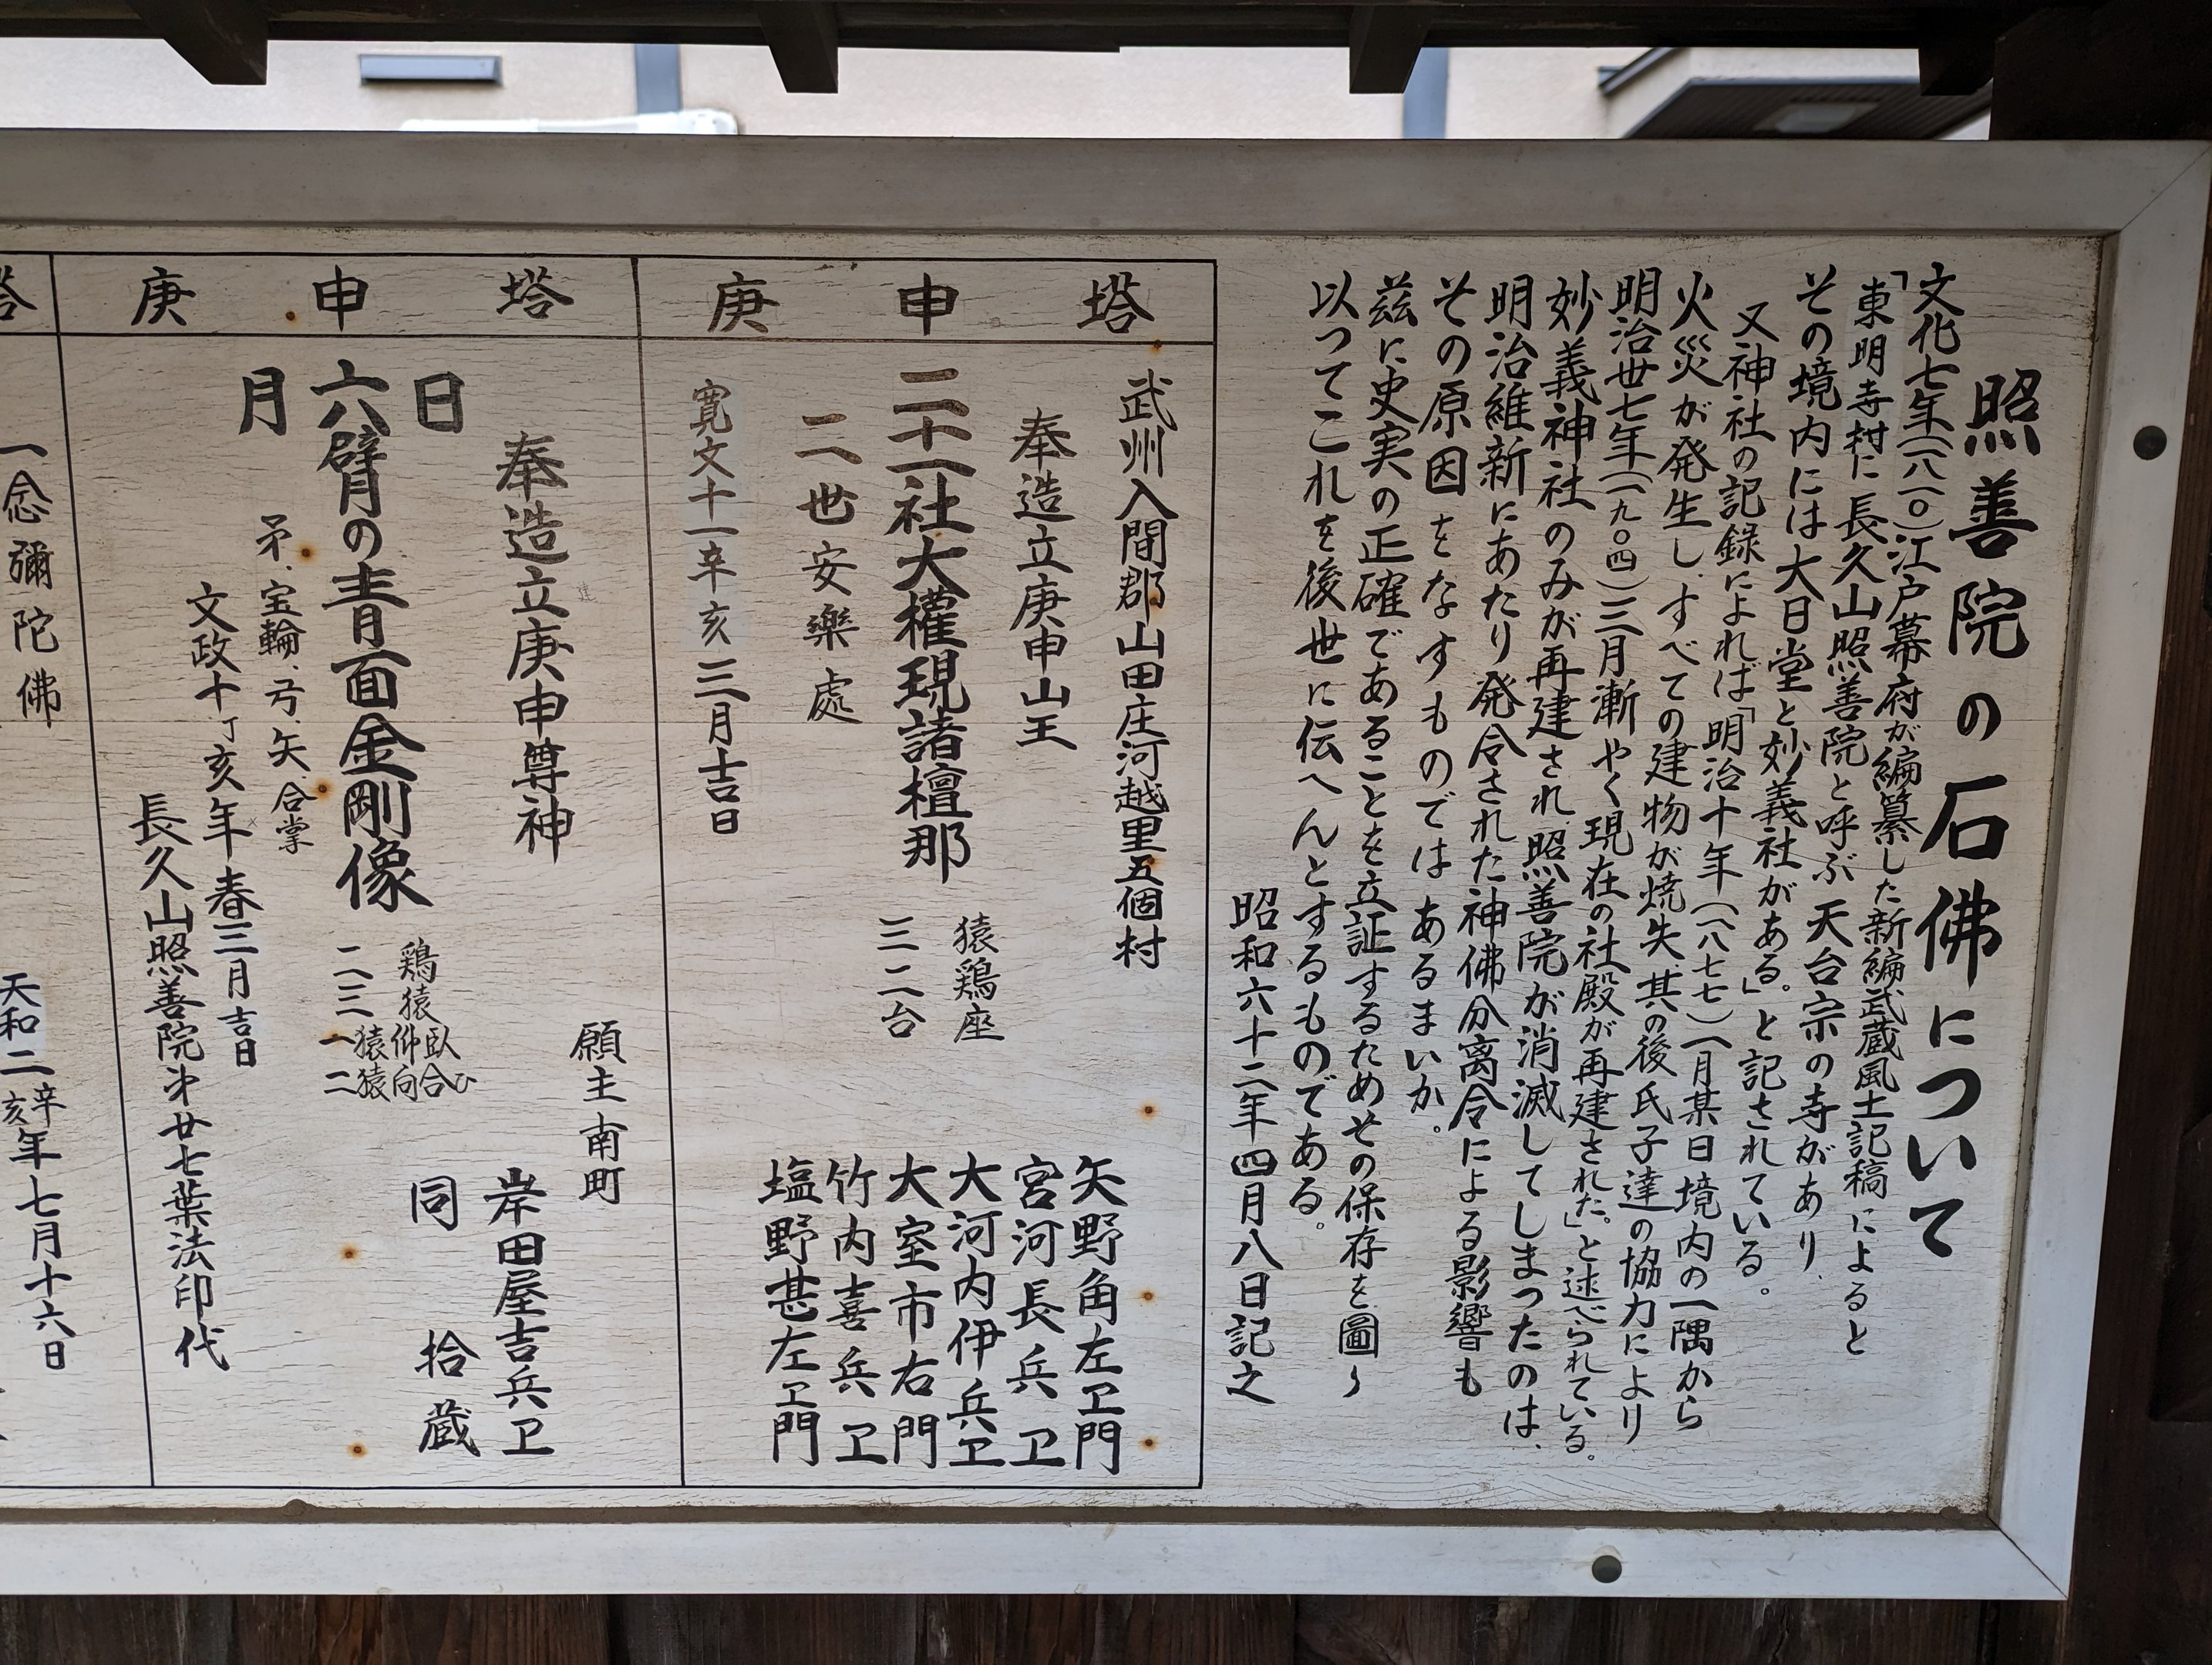 照善院の石佛について
文化七年（一八一〇）江戸幕府が編纂した新編武蔵風土記稿によると
「東明寺村に長久山照善院と呼ぶ天台宗の寺があり、
その境内には大日堂と妙義社がある。」と記されている。
又神社の記録によれば「明治十年（一八七七）一月某日境内の一隅から
火災が発生し、すべての建物が焼失、其の後氏子達の協力により
明治卅七年（一九〇四）三月漸やく現在の社殿が再建された」。と述べられている。
妙義神社のみが再建され、照善院が消滅してしまったのは、
明治維新にあたり発令された神佛分离令による影響も
その原因をなすものではあるまいか。
茲に史実の正確であることを立証するためその保存を圖り
以つてこれを後世に伝へんとするものである。
昭和六十二年四月八日記之
塔申庚
武州入間郡山田庄河越里五個村
奉造立庚申山王
二十一社大權現諸檀那
二世安樂處
寛文十一辛亥三月吉日
猿鶏座
三二台
矢野角左ヱ門
宮河長兵ヱ
大河内伊兵ヱ
大室市右門
竹内喜兵ヱ
塩野甚左ヱ門
塔申庚
奉造立庚申尊神
日
六臂の青面金剛像
月
矛、宝輪、弓、矢、合掌
鶏猿
二三
一猿仰臥
二猿向合ひ
文政十丁亥年春三月吉日
長久山照善院㐧廿七葉法印代
願主南町
岸田屋吉兵ヱ
同拾蔵
塔
一念彌陀佛
天和二辛亥年七月十六日